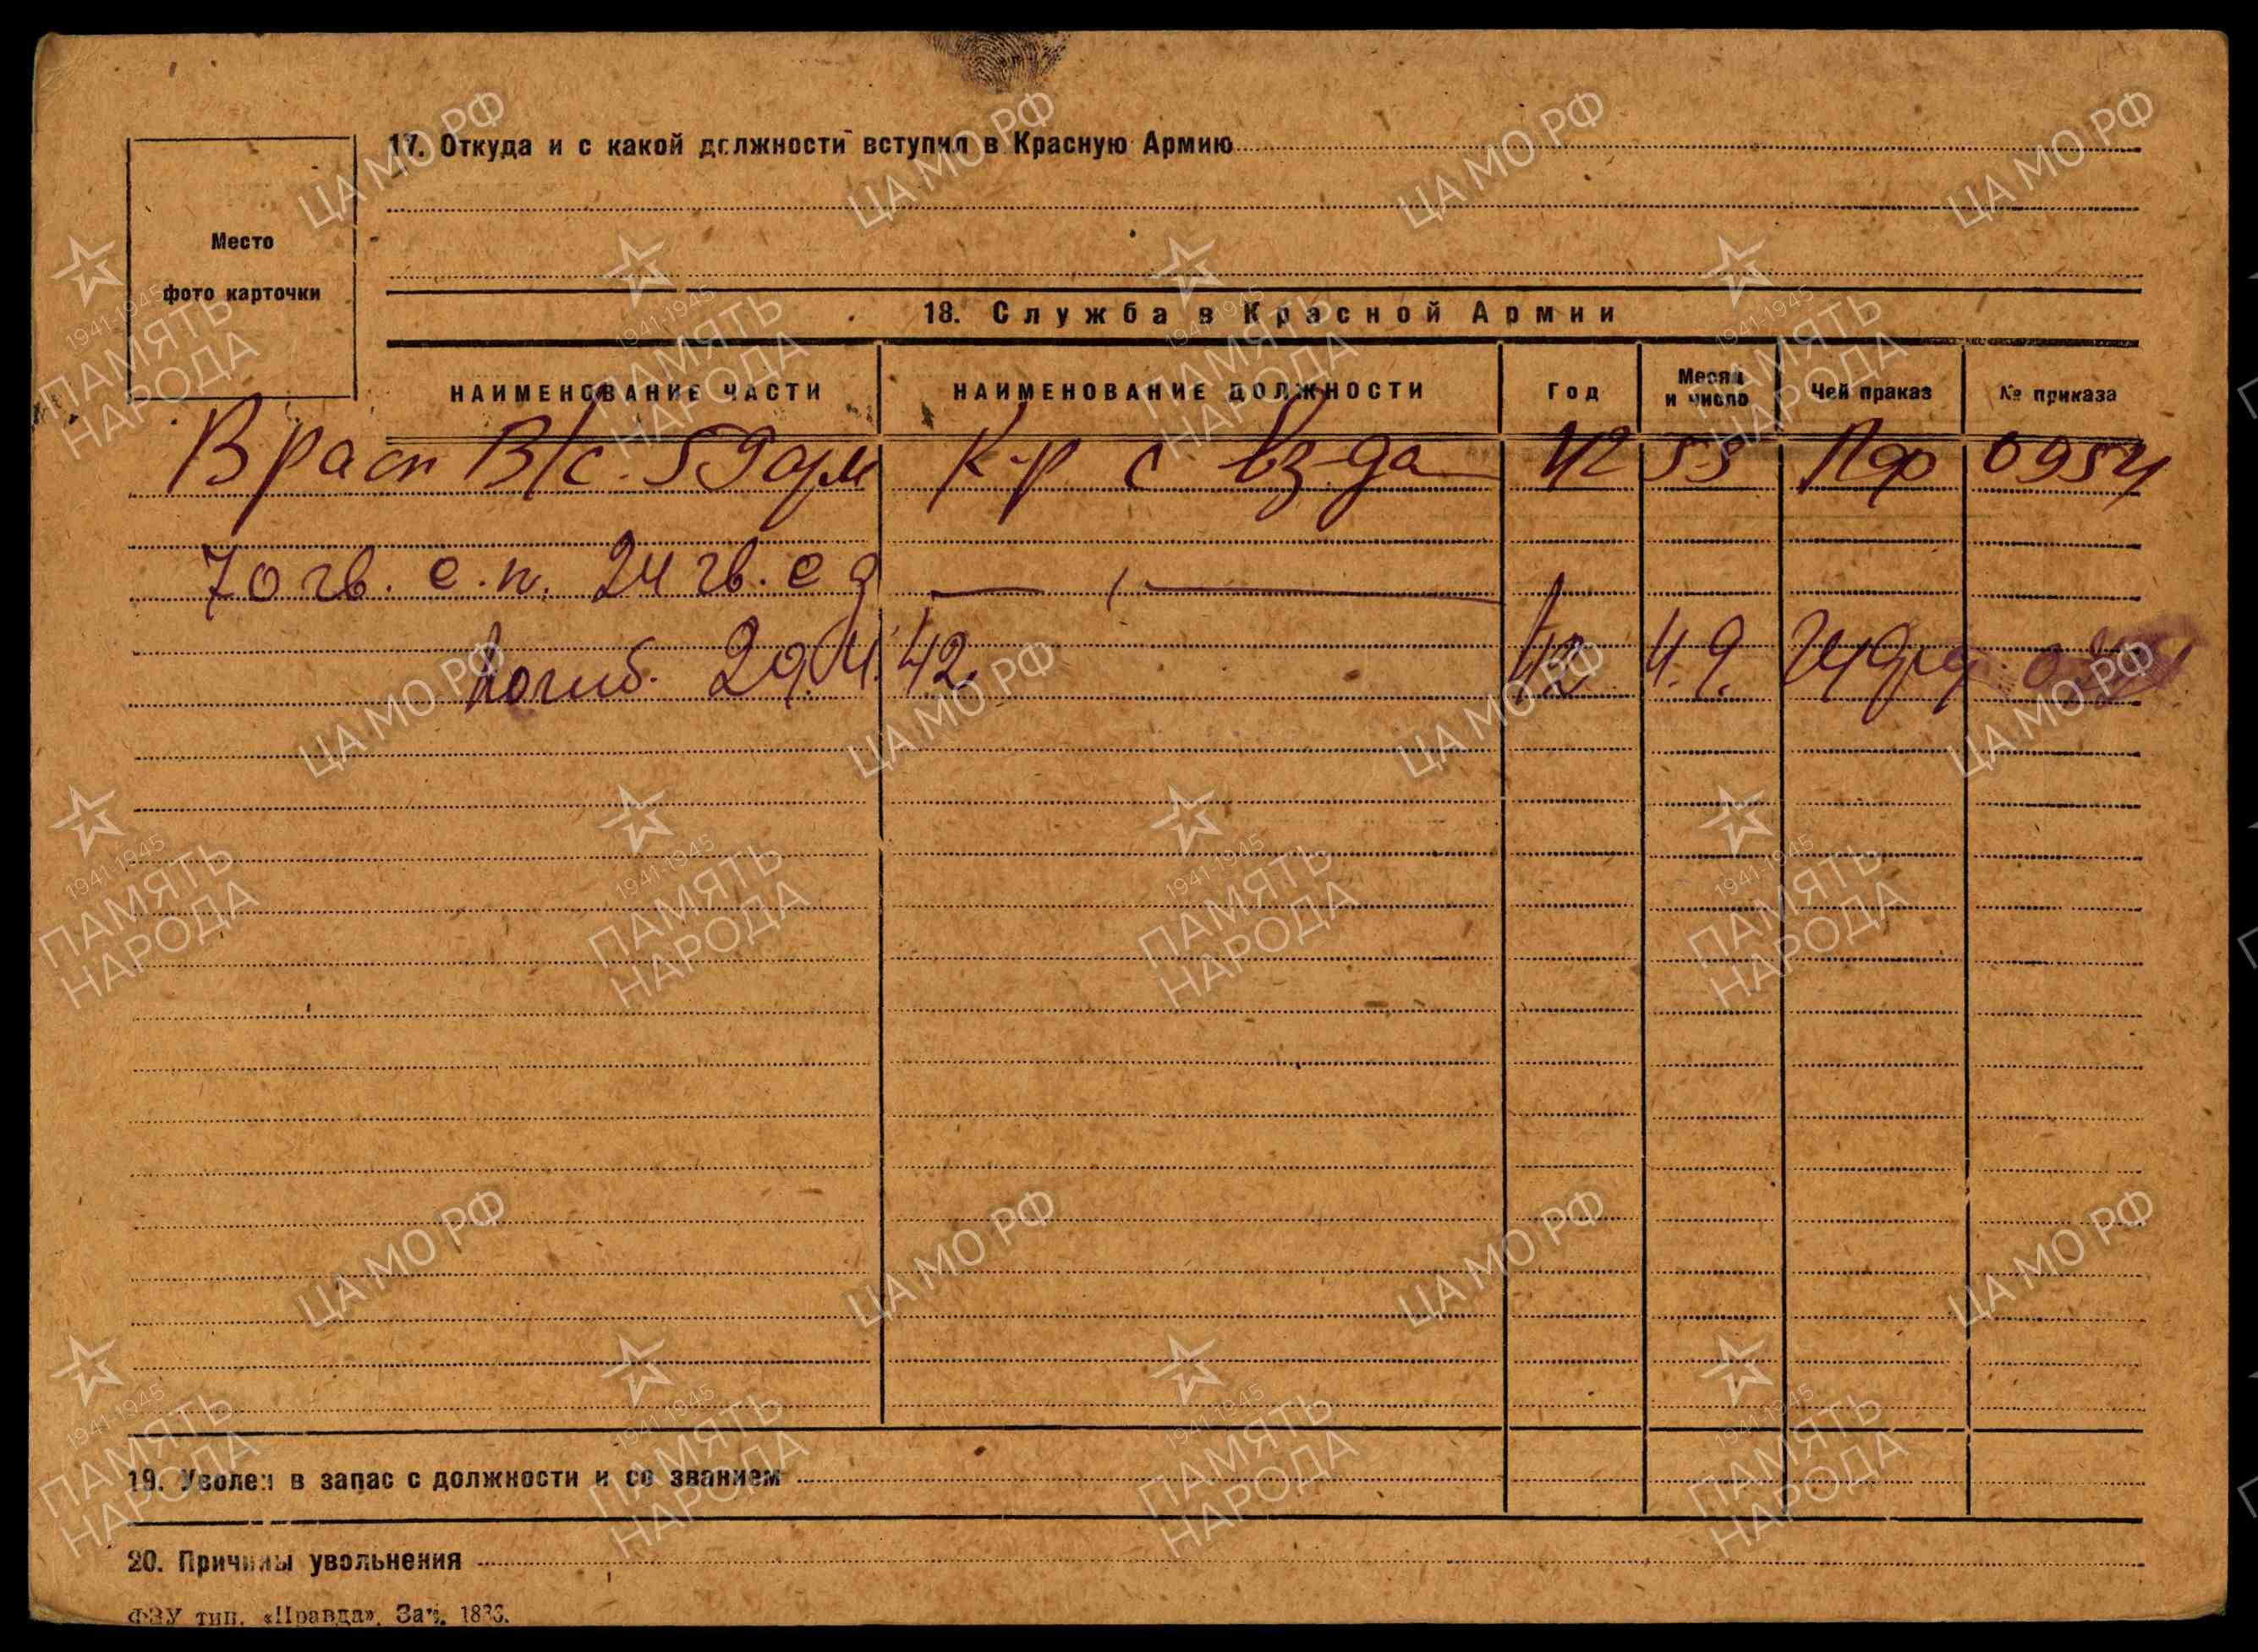 17. Откуда и с какой должности вступил в Красную Армию
Место
фото карточки
18. Служба в Красной Армии
НАИМЕНОВАНИЕ ЧАСТИ НАИМЕНОВАНИЕ ДОЛЖНОСТИ Год Месяц и число Чей праказ № приказа
В расп В/с. 59 арм К-р с вз-да 42 5.5 Лф 0954
70 гв. с.п. 24 гв. сд
погиб. 29. 42. 42 4.9.
19. Уволен в запас с должности и со званием
20. Причины увольнения
ФЗУ тип. «Правда». Зак. 1836.
ЦА МО РФ
1941-1945
ПАМЯТЬ
НАРОДА